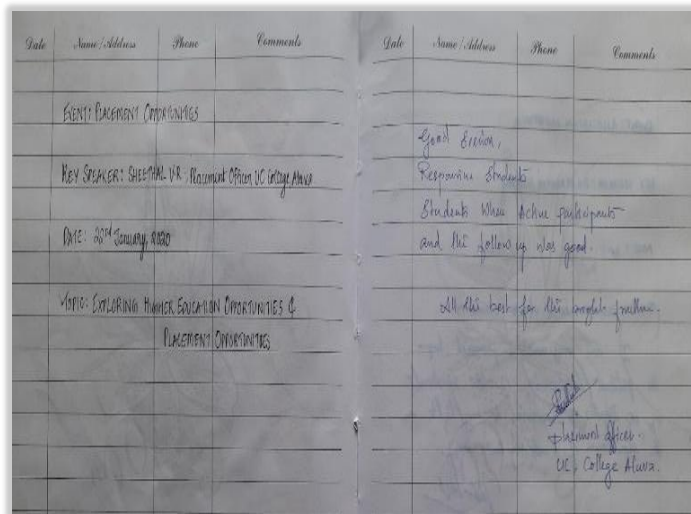 Date Name/Address Phone Comments
EVENT: PLACEMENT OPPORTUNITIES
KEY SPEAKER: SHEETHAL V.R - Placement Officer UC College Aluva
DATE: 22nd January, 2020
TOPIC: EXPLORING HIGHER EDUCATION OPPORTUNITIES &
PLACEMENT OPPORTUNITIES
Date Name/Address Phone Comments
Good Session,
Responsive Students
Students When Active participants
and the follow up was good.
All the best for the bright future.
placement officer.
UC, College Aluva.